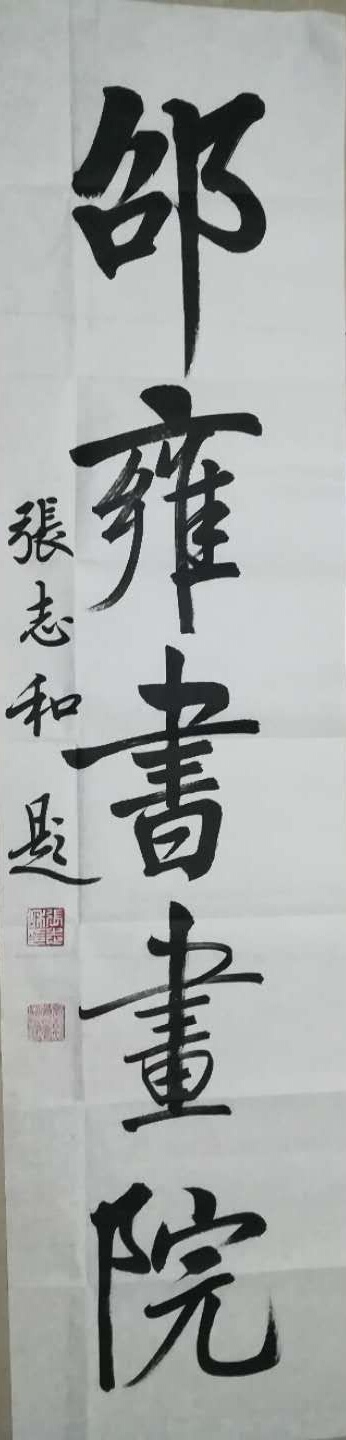 邵雍書畫院
張志和題